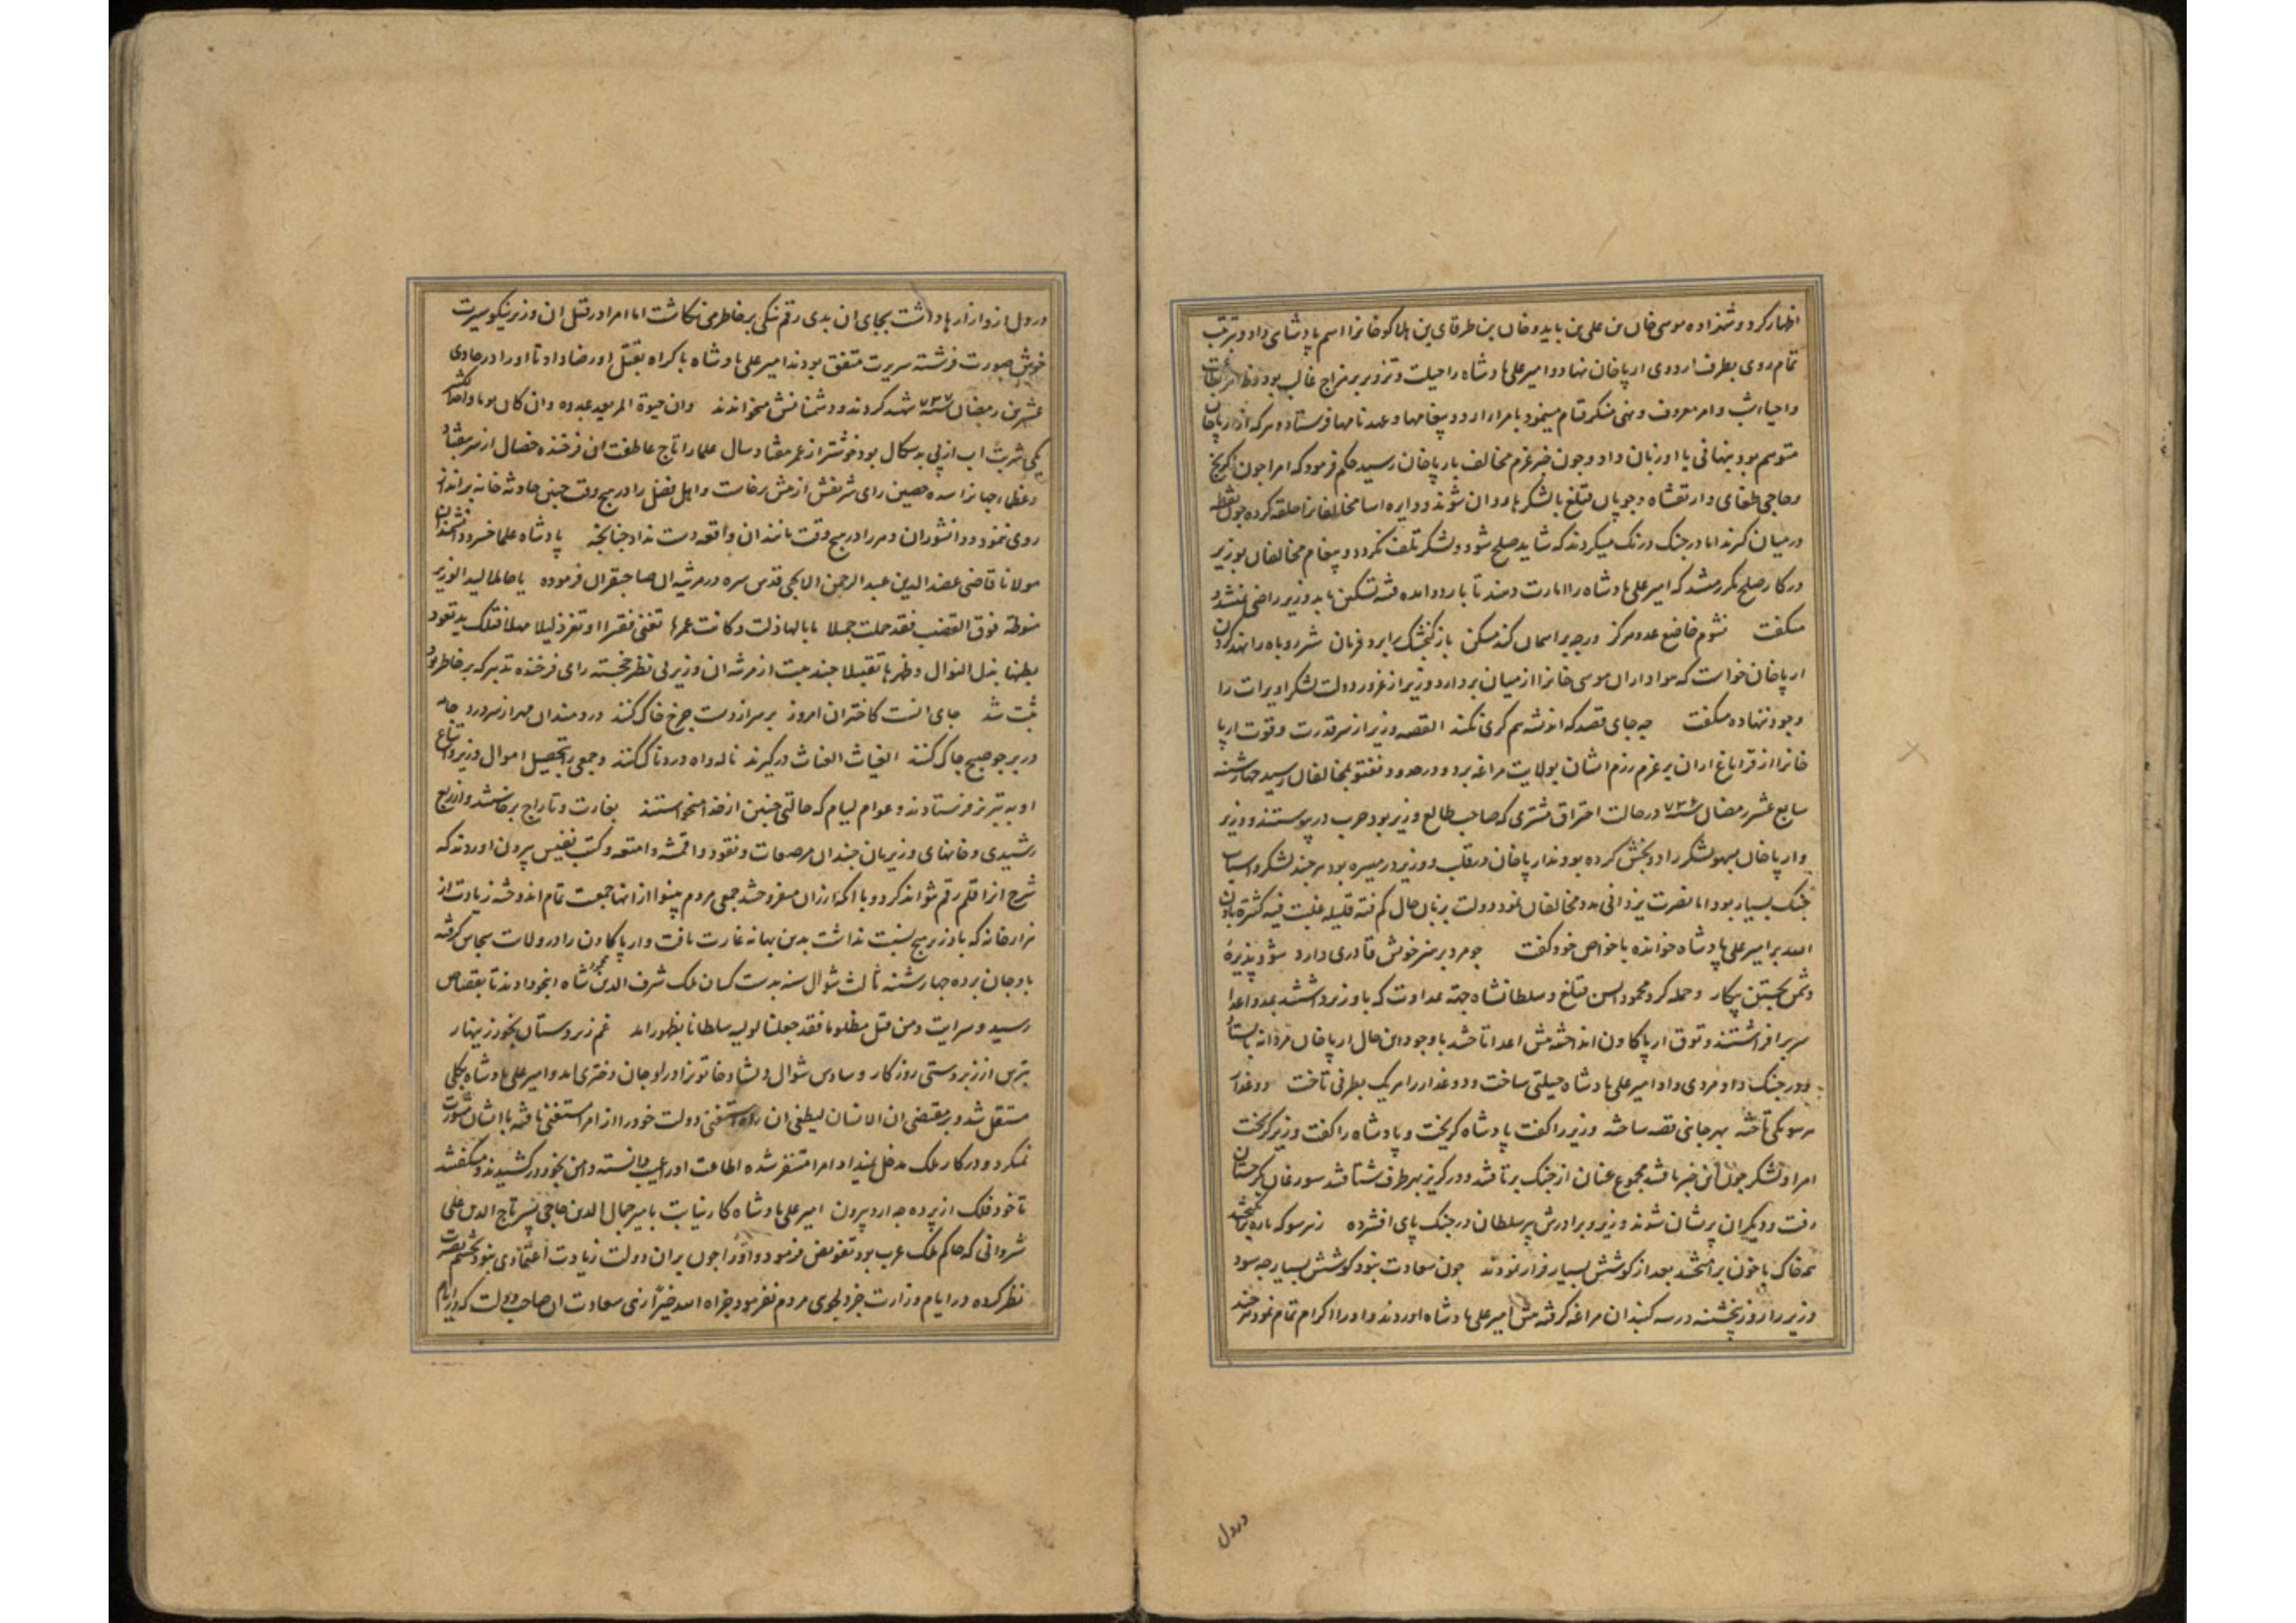 اظهار کرد و شهزاده موسی خان بن علی بن بایدو خان بن طرقای بن هلاکو خانرا اسم پادشاهی داد و بترتیب
تمام روی بطرف اردوی ارپا خان نهاد و امیر علی پادشاه را حیلت و تزویر بر مزاج غالب بود و
و امر معروف و نهی منکر قیام مینمود بامرا اردو پیغامها و عهدنامها فرستاد و هر که از ارپا خان
متوهم بود پنهانی با او زبان داد و چون خبر عزم مخالف بارپا خان رسید حکم فرمود که امرا چون اکرنج
و حاجی طغای و ارتقشاه و چوپان قتلغ بالشکرها روان شوند و دایره اسا مخالفانرا حلقه کرده چون نقطه
در میان گیرند اما در جنک درنک میکردند که شاید صلح شود و لشکر تلف نکردد و پیغام مخالفان بوزیر
در کار صلح مکرر میشد که امیر علی پادشاه را امارت دهند تا باردو امده فتنه تسکین یابد وزیر راضی نمیشد و
میکفت نشوم خاضع عدو هرکز ورچه بر اسمان کند مسکن باز کنجشک را برد فرمان شیر روباه را نهد کردن
ارپا خان خواست که هواداران موسی خانرا از میان بردارد وزیر از غرور دولت لشکر اویرات را
وجود ننهاده میکفت چه جای قصد که اندیشه هم کری نکند القصه وزیر از سر قدرت و قوت ارپا
خانرا از قراباغ اران بر عزم رزم ایشان بولایت مراغه برد و در حدود نغتو بمخالفان رسید چهارشنبه
سابع عشر رمضان سنه ۷۳۶ در حالت احتراق مشتری که صاحب طالع وزیر بود حرب در پیوستند و وزیر
و ارپا خان بسهو لشکر را دو بخش کرده بودند ارپا خان در قلب و وزیر در میسره بود هر چند لشکر و اسباب
جنک بسیار بود اما نصرت یزدانی مدد مخالفان نمود دولت بزبان حال کم فئة قلیلة غلبت فئة کثیرة باذن
الله بر امیر علی پادشاه خوانده با خواص خود کفت چو مرد بر هنر خویش قادری دارد شود پذیره
دشمن بجستن پیکار و حمله کرد محمود ایسن قتلغ و سلطانشاه جهة عداوت که با وزیر داشتند بمدد اعدا
سر برافراشتند و توق ارپاکاون انداخته پیش اعدا تاختند با وجود این حال ارپا خان مردانه بایستاد
و در جنک داد مردی داد امیر علی پادشاه حیلتی ساخت و دو غدار را هریک بطرفی تاخت دو غدار
هر سو یکی تاخته بهر جانبی قصه ساخته وزیر را کفت پادشاه کریخت و پادشاه را کفت وزیر کریخت
امرا و لشکر چون این خبر یافتند مجموع عنان از جنک برتافتند و در کریز بهر طرف شتافتند سورغان بکرجستان
رفت و دیکران پریشان شدند وزیر و برادرش پیر سلطان در جنک پای افشرده زهر سو که باره برانکیختند
همه خاک با خون برامیختند بعد از کوشش بسیار فرار نمودند چون سعادت نبود کوشش بسیار چه سود
وزیر را روز پنجشنبه در سه کنبدان مراغه کرفته پیش امیر علی پادشاه اوردند و او را اکرام تمام نمود هر چند
در دل
در دل از او ازارها داشت بجای ان بدی رقم نیکی بر خاطر می نکاشت اما امرا در قتل ان وزیر نیکو سیرت
خوش صورت فرشته سریرت متفق بودند امیر علی پادشاه باکراه بقتل او رضا داد تا او را در حادی
عشرین رمضان سنه ۷۳۶ شهید کردند و دشمنانش میخواندند وان حیوة المر بعید عدوه وان کان یوما واحدا لکثیر
یکی شربت اب از پی بدسکال بود خوشتر از عمر هفتاد سال علما را تاج عاطفت ان فرخنده خصال از سر بیفتاد
و عظما رجبا نرا سده حصین رای شریفش از پیش برخاست و اهل فضل را در هیچ وقت چنین حادثه خانه برانداز
روی ننمود و دانشوران دهر را در هیچ وقت مانند ان واقعه دست نداد چنانچه پادشاه علما خسرو دانشمندان
مولانا قاضی عضد الدین عبد الرحمن الایجی قدس سره در مرثیه ان صاحبقران فرموده
فوق القضیب فقد حملت جمیلا یا بالها ذلت و کانت عمرها تغنی فقیرا او تعز ذلیلا مهلا فتلک ید تعود
بطنها بذل النوال و ظهرها تقبیلا چند بیت از مرثیه ان وزیر بی نظیر خجسته رای فرخنده تدبیر که بر خاطر بود
ثبت شد جای انست کاختران امروز بر سر از دست چرخ خاک کنند دردمندان مهر از سر درد جامه
در بر چو صبح چاک کنند الغیاث الغیاث درکیرند ناله و اه دردناک کنند و جمعی را بتحصیل اموال وزیر و اتباع
او به تبریز فرستادند و عوام لیام که حالتی چنین از خدا میخواستند بغارت و تاراج برخاستند و از ربع
رشیدی و خانهای وزیریان چندان مرصعات و نقود و اقمشه و امتعه و کتب نفیس بیرون اوردند که
شرح انرا قلم رقم نتواند کرد و با انکه ارزان میفروختند جمعی مردم بینوا از انها جمعیت تمام اندوختند زیادت از
هزار خانه که با وزیر هیچ نسبت نداشت بدین بهانه غارت یافت و ارپاکاون را در ولایت سجاس کرفته
باوجان برده چهارشنبه ثالث شوال سنه بدست کسان ملک شرف الدین محمود شاه اینجو دادند تا بقصاص
رسید و سرایت ومن قتل مظلوما فقد جعلنا لولیه سلطانا بظهور امد غم زیردستان بخور زینهار
بترس از زبردستی روزکار و سادس شوال دلشاد خاتونرا در اوجان دختری امد و امیر علی پادشاه بکلی
مستقل شد و بر مقتضی ان الانسان لیطغی ان راه استغنی دولت خود را از امرا مستغنی یافته با ایشان مشورت
نمیکرد و در کار ملک مدخل نمیداد امرا متنفر شده اطاعت او را عیب دانسته دامن بخود درکشیدند و میکفتند
تا خود فلک از پرده چه ارد بیرون امیر علی پادشاه کار نیابت بامیر جمال الدین حاجی پسر تاج الدین علی
شروانی که حاکم ملک عرب بود تفویض فرمود و او را چون بران دولت زیادت اعتمادی نبود بچشم بصیرت
نظر کرده در ایام وزارت جز دلجوی مردم نفرمود جزاه الله خیرا زهی سعادت ان صاحب دولت که در ایام